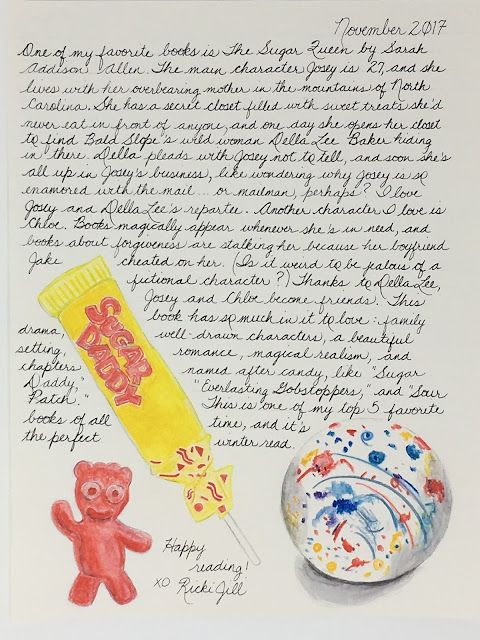 November 2017
One of my favorite books is The Sugar Queen by Sarah
Addison Allen. The main character Josey is 27, and she
lives with her overbearing mother in the mountains of North
Carolina. She has a secret closet filled with sweet treats she'd
never eat in front of anyone, and one day she opens her closet
to find Bald Slope's wild woman Della Lee Baker hiding
in there. Della pleads with Josey not to tell, and soon she's
all up in Josey's business, like wondering why Josey is so
enamored with the mail.... or mailman, perhaps? I love
Josey and Della Lee's repartee. Another character I love is
Chloe. Books magically appear whenever she's in need, and
books about forgiveness are stalking her because her boyfriend
Jake cheated on her. (Is it weird to be jealous of a
fictional character?) Thanks to Della Lee,
Josey and Chloe become friends. This
book has so much in it to love: family
drama, well-drawn characters, a beautiful
setting, romance, magical realism, and
chapters named after candy, like "Sugar
Daddy," "Everlasting Gobstoppers," and "Sour
Patch." This is one of my top 5 favorite
books of all time, and it's
the perfect winter read.
SUGAR
DADDY
Happy
reading!
XO Ricki Jill